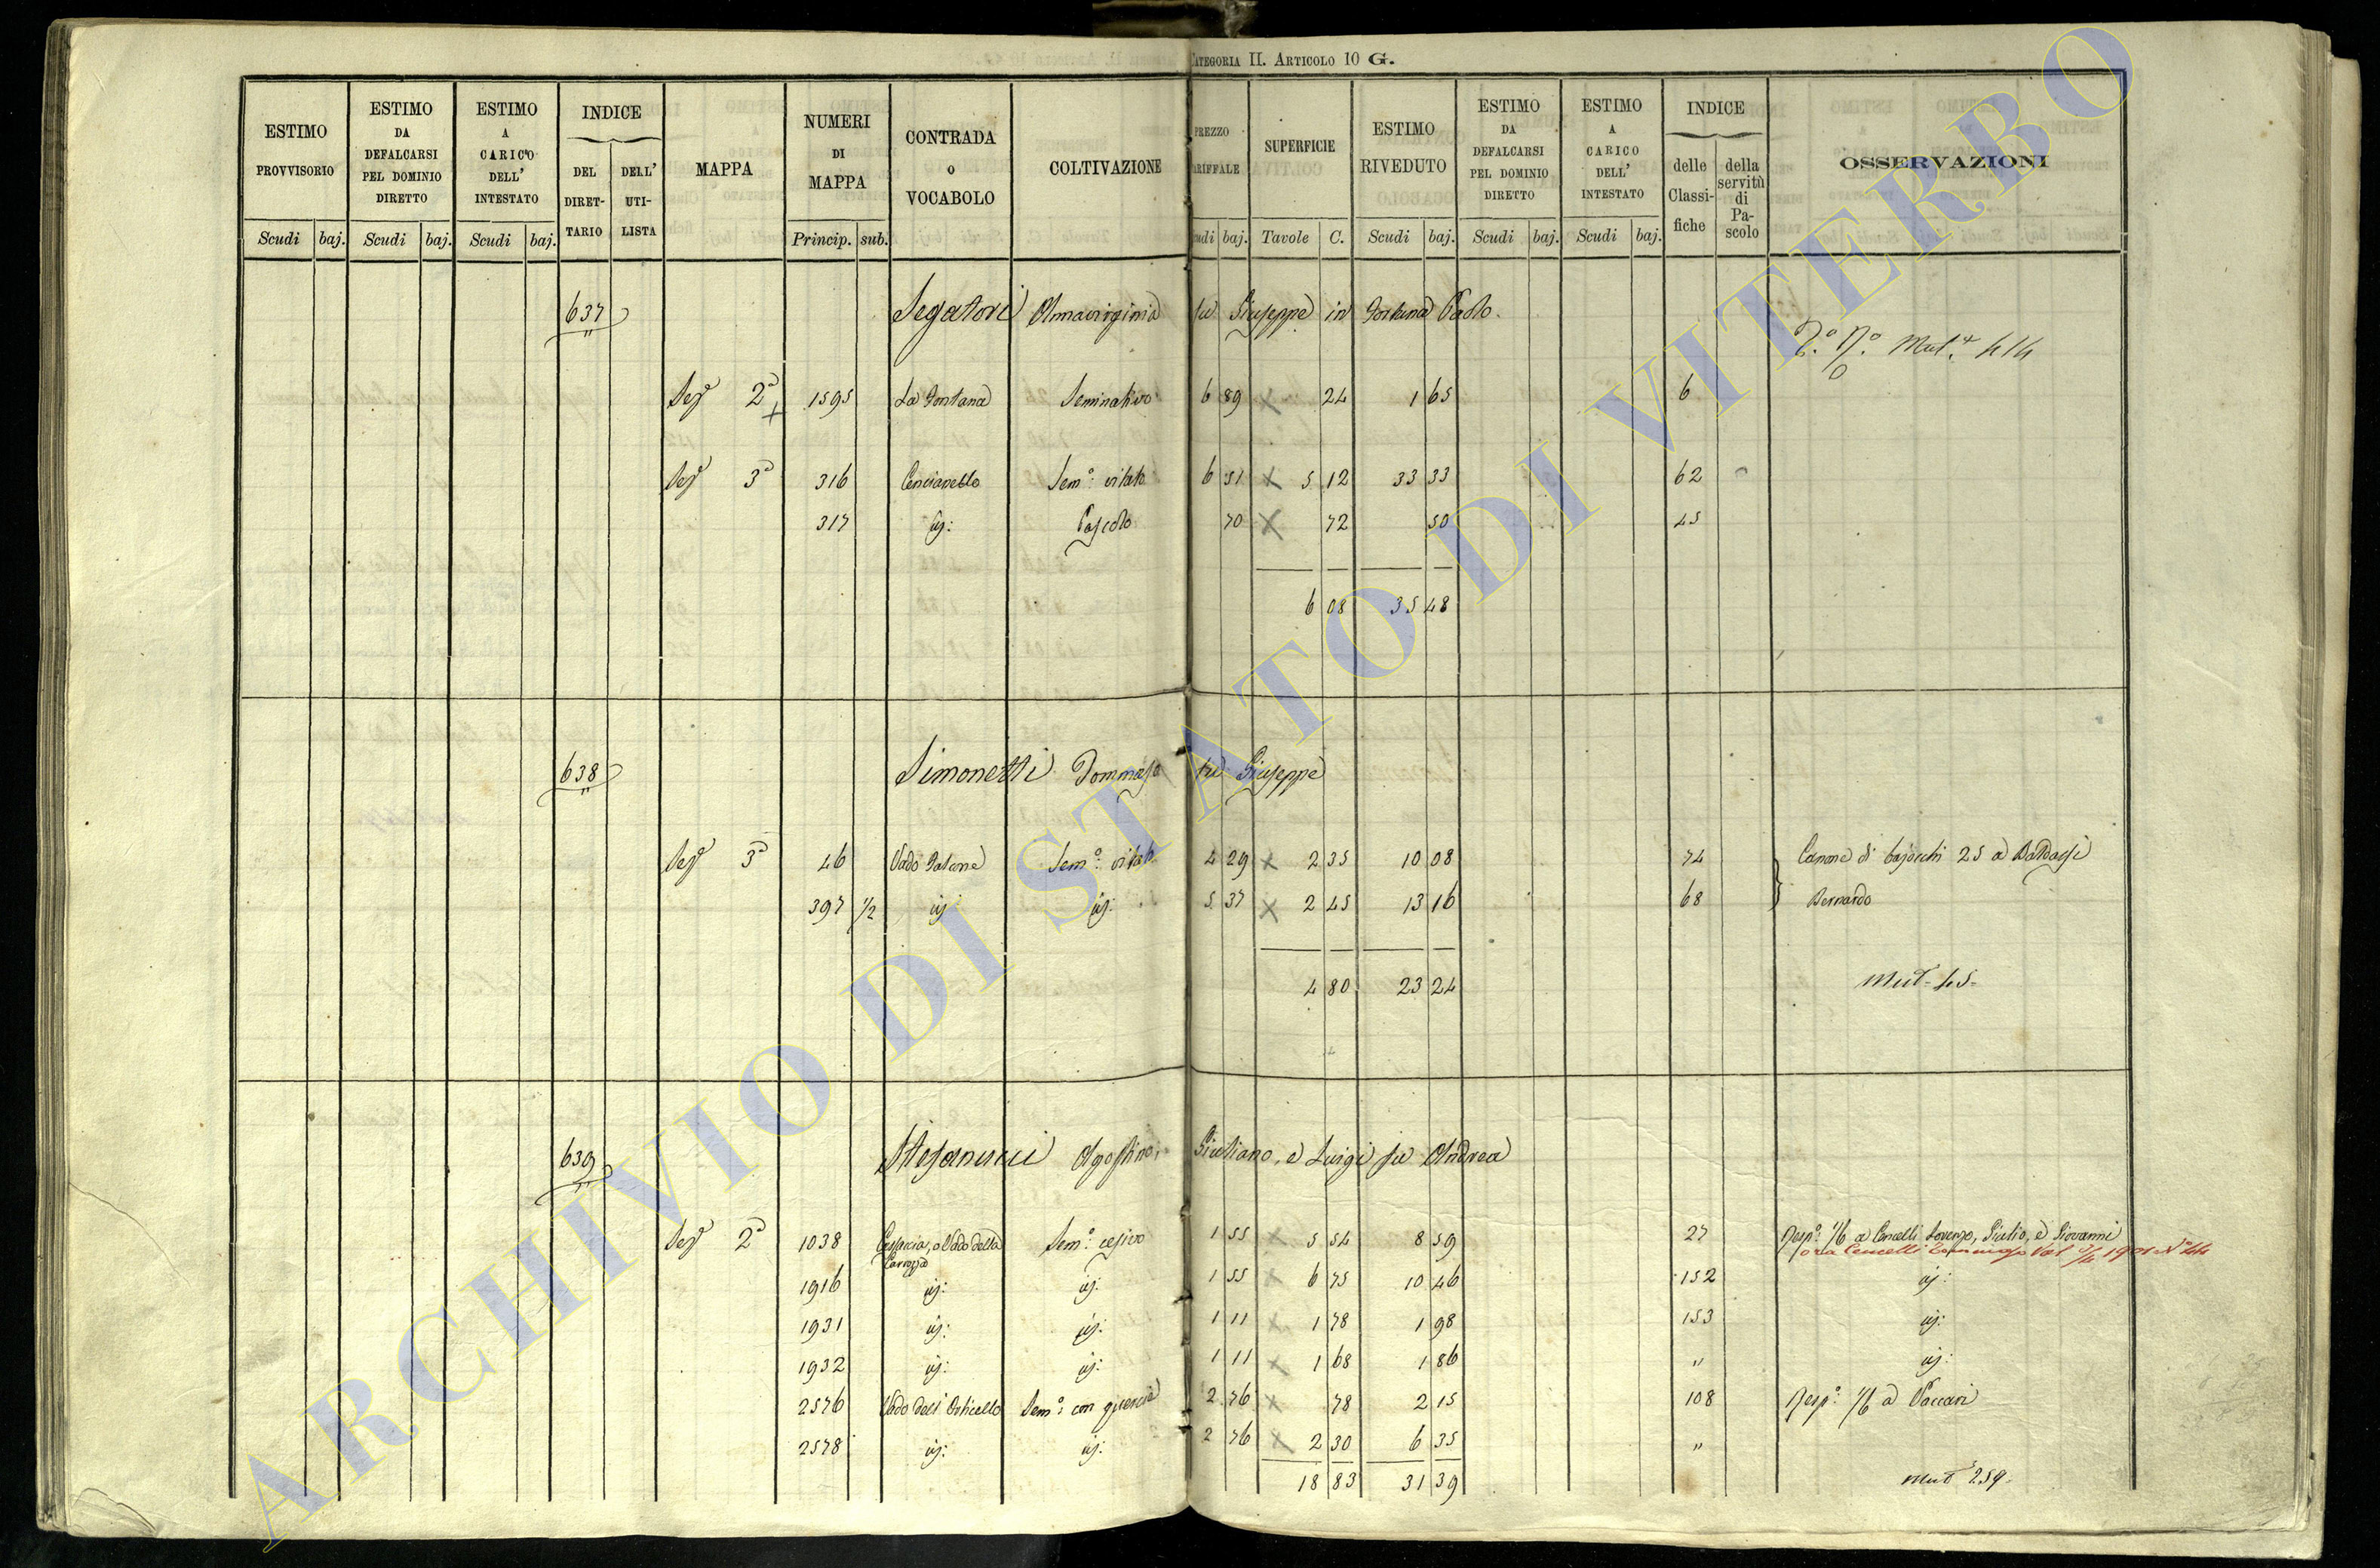 CATEGORIA II. ARTICOLO 10 G.
ESTIMO PROVVISORIO | ESTIMO DA DEFALCARSI PEL DOMINIO DIRETTO | ESTIMO A CARICO DELL' INTESTATO | INDICE DEL DIRETTARIO | DELL' UTILISTA | MAPPA | NUMERI DI MAPPA | CONTRADA O VOCABOLO | COLTIVAZIONE | PREZZO | SUPERFICIE | ESTIMO RIVEDUTO | ESTIMO DA DEFALCARSI PEL DOMINIO DIRETTO | ESTIMO A CARICO DELL' INTESTATO | INDICE delle Classifiche | della servitù di Pascolo | OSSERVAZIONI
Scudi baj. Scudi baj. Scudi baj. Princip. sub. baj. Tavole C. Scudi baj. Scudi baj. Scudi baj.
637 Segatori Annavirginia fu Giuseppe in Fontana Paolo
Mut. 414
Sez 2a 1595 La Fontana Seminativo 6 89 24 1 65 6
Sez 3a 316 Cencianello Sem: vitato 6 51 5 12 33 33 62
317 id: Pascolo 70 72 50 45
6 08 35 48
638 Simonetti Tommaso fu Giuseppe
Sez 3a 46 Vado Sem: vitato 4 29 2 35 10 08 74 Canone di bajocchi 25 a Baldassi
397 1/2 id id: 5 37 2 45 13 16 68 Bernardo
4 80 23 24 Mut. 45
639 Stefanucci Agostino, Giuliano, e Luigi fu Andrea
Sez 2a 1038 o Vado della Sem: cesivo 1 55 5 54 8 59 27 Resp: 1/6 a Cencelli Lorenzo, Giulio, e Giovanni
ora Cencelli Tommaso 1901 No 44
1916 id: id: 1 55 6 75 10 46 152 id:
1931 id: id: 1 11 1 78 1 98 153 id:
1932 id: id: 1 11 1 68 1 86 " id:
2576 Vado dell' Orticello Sem: con querciè 2 76 78 2 15 108 Resp: 1/6 a Vaccari
2578 id: id: 2 76 2 30 6 35 "
18 83 31 39 Mut 259
ARCHIVIO DI STATO DI VITERBO